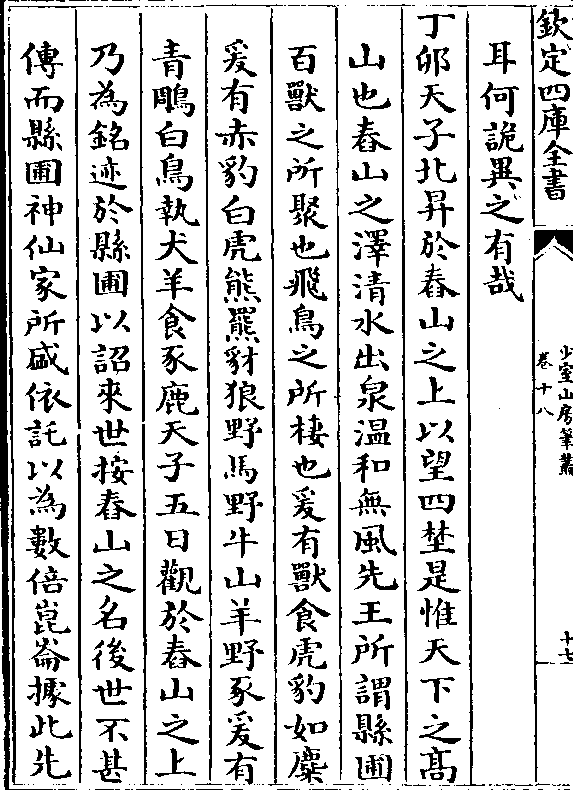 欽定四庫全書
少室山房筆叢
卷十八
十七
耳何詭異之有哉
丁卯天子北昇於舂山之上以望四埜是惟天下之髙
山也舂山之澤清水出泉温和無風先王所謂縣圃
百獸之所聚也飛鳥之所棲也爰有獸食虎豹如麋
爰有赤豹白虎熊羆豺狼野馬野牛山羊野豕爰有
青鵰白鳥執犬羊食豕鹿天子五日觀於舂山之上
乃為銘迹於縣圃以詔來世按舂山之名後世不甚
傳而縣圃神仙家所盛依託以為數倍崑崙據此先